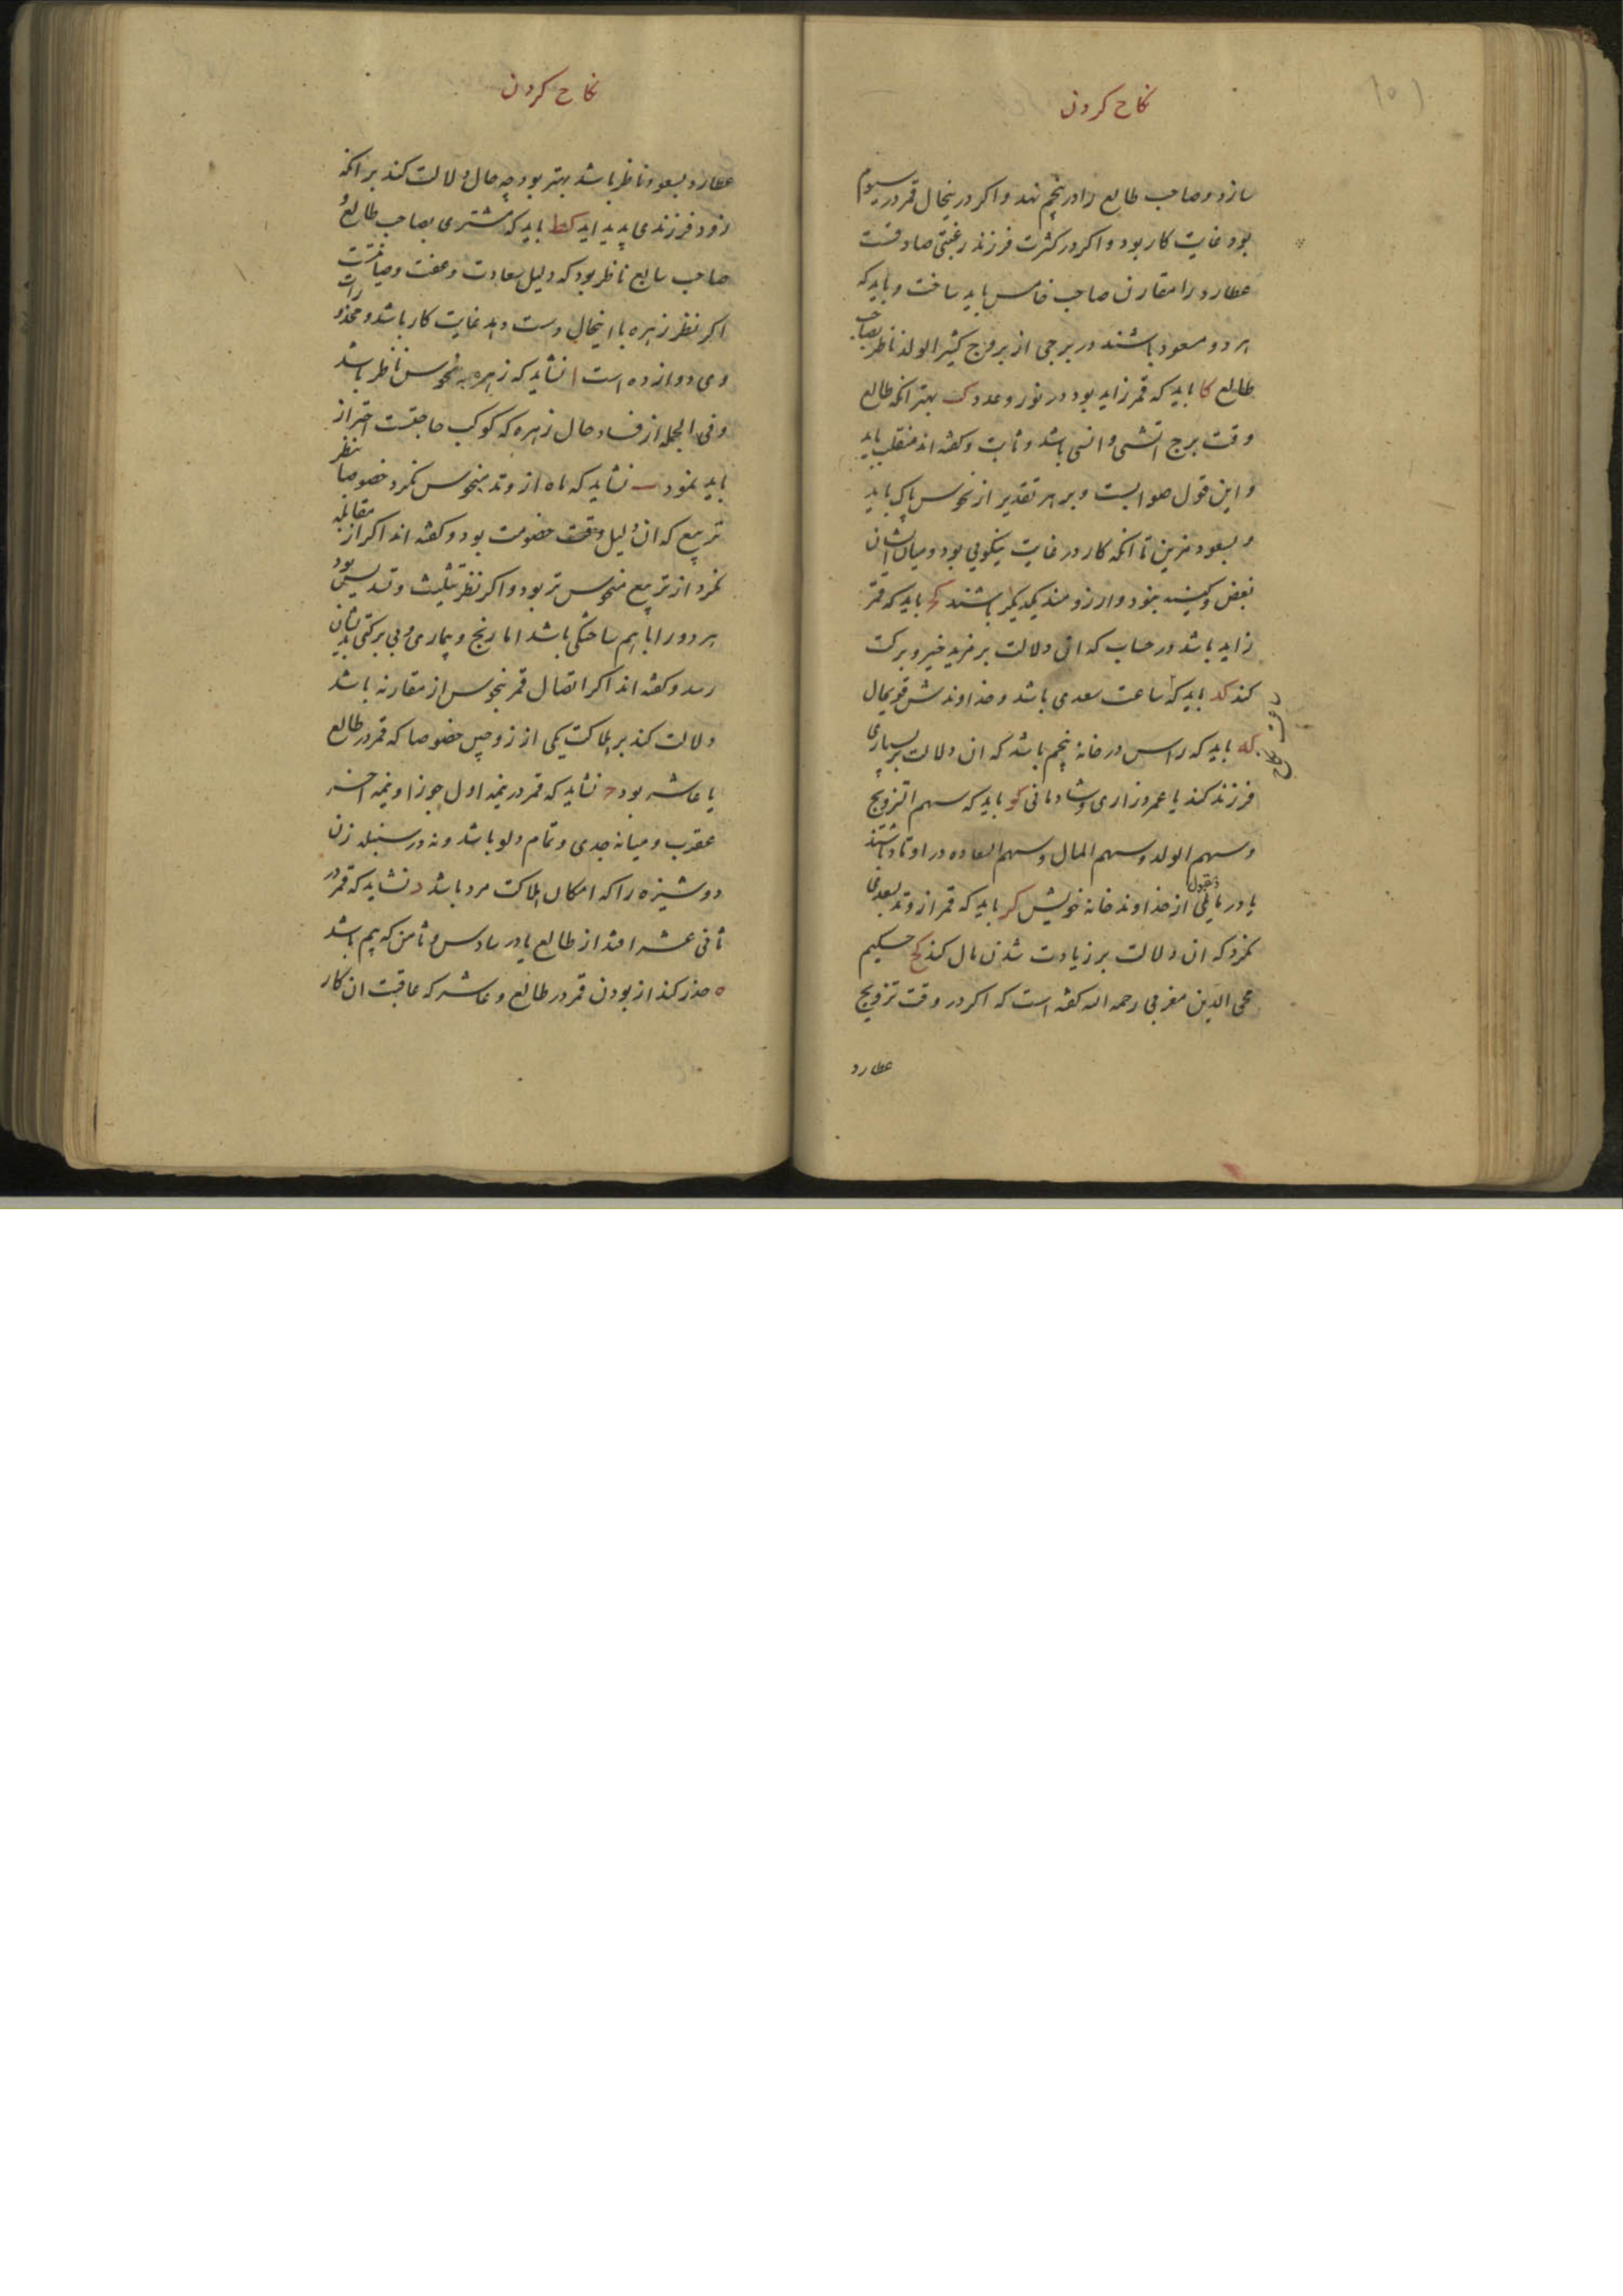 نکاح کردن
سازد و صاحب طالع را در پنجم نهد و اکر درینحال قمر در سیوم
بود غایت کار بود و اکر در کثرت فرزند رغبتی صادقست
عطارد را مقارن صاحب خامس باید ساخت و باید که
هر دو مسعود باشند در برجی از بروج کثیر الولد ناظر بصاحب
طالع کا باید که قمر زاید بود در نور و عدد کب بهتر انکه طالع
وقت برج اتشی و انسی باشد و ثابت و کفته اند منقلب باید
و این قول صوابست و بر هر تقدیر از نحوس پاک باید
و بسعود مزین تا انکه کار در غایت نیکویی بود و میان ایشان
بغض و کینه نبود و ارزومند یکدیکر باشند کج باید که قمر
زاید باشد در حساب که ان دلالت بر مزید خیر و برکت
کند کد باید که ساعت سعدی باشد و خداوندش قویحال
که باید که راس در خانهٔ پنجم باشد که ان دلالت بر بسیاری
فرزند کند با عمر درازی و شادمانی کو باید که سهم التزویج
و سهم الولد و سهم المال و سهم السعاده در اوتاد باشند
یا در مایلی از خداوند خانه خویش کز باید که قمر از وتد بسعدی
نکرد که ان دلالت بر زیادت شدن مال کند کح حکیم
محی الدین مغربی رحمه الله کفته است که اکر در وقت تزویج
عطارد
نکاح کردن
عطارد بسعود ناظر باشد بهتر بود چه حال دلالت کند بر انکه
زود فرزندی پدید اید کط باید که مشتری بصاحب طالع و
صاحب سابع ناظر بود که دلیل سعادت و عفت و صیانتست
اکر نظر زهره با اینحال دست دهد غایت کار باشد و محذورات
وی دوازده است ا نشاید که زهره به نحوس ناظر باشد
و فی الجمله از فساد حال زهره که کوکب حاجتست احتراز
باید نمود ب نشاید که ماه از وتد بنحوس نکرد خصوصا بنظر
تربیع که ان دلیل وقت خصومت بود و کفته اند اکر از مقابله
نکرد از تربیع منحوس تر بود و اکر نظر تثلیث و تسدیس بود
هر دو را با هم ساختکی باشد اما رنج و بیماری و بی برکتی بدیشان
رسد و کفته اند اکر اتصال قمر بنحوس از مقارنه باشد
دلالت کند بر هلاکت یکی از زوجین خصوصا که قمر در طالع
یا عاشر بود ج نشاید که قمر در نیمه اول جوزا و نیمه اخر
عقرب و میانه جدی و تمام دلو باشد و نه در سنبله زن
دوشیزه را که امکان هلاکت مرد باشد د نشاید که قمر در
ثانی عشر افتد از طالع یا در سادس و ثامن که بیم باشد
ه حذر کند از بودن قمر در طالع و عاشر که عاقبت ان کار